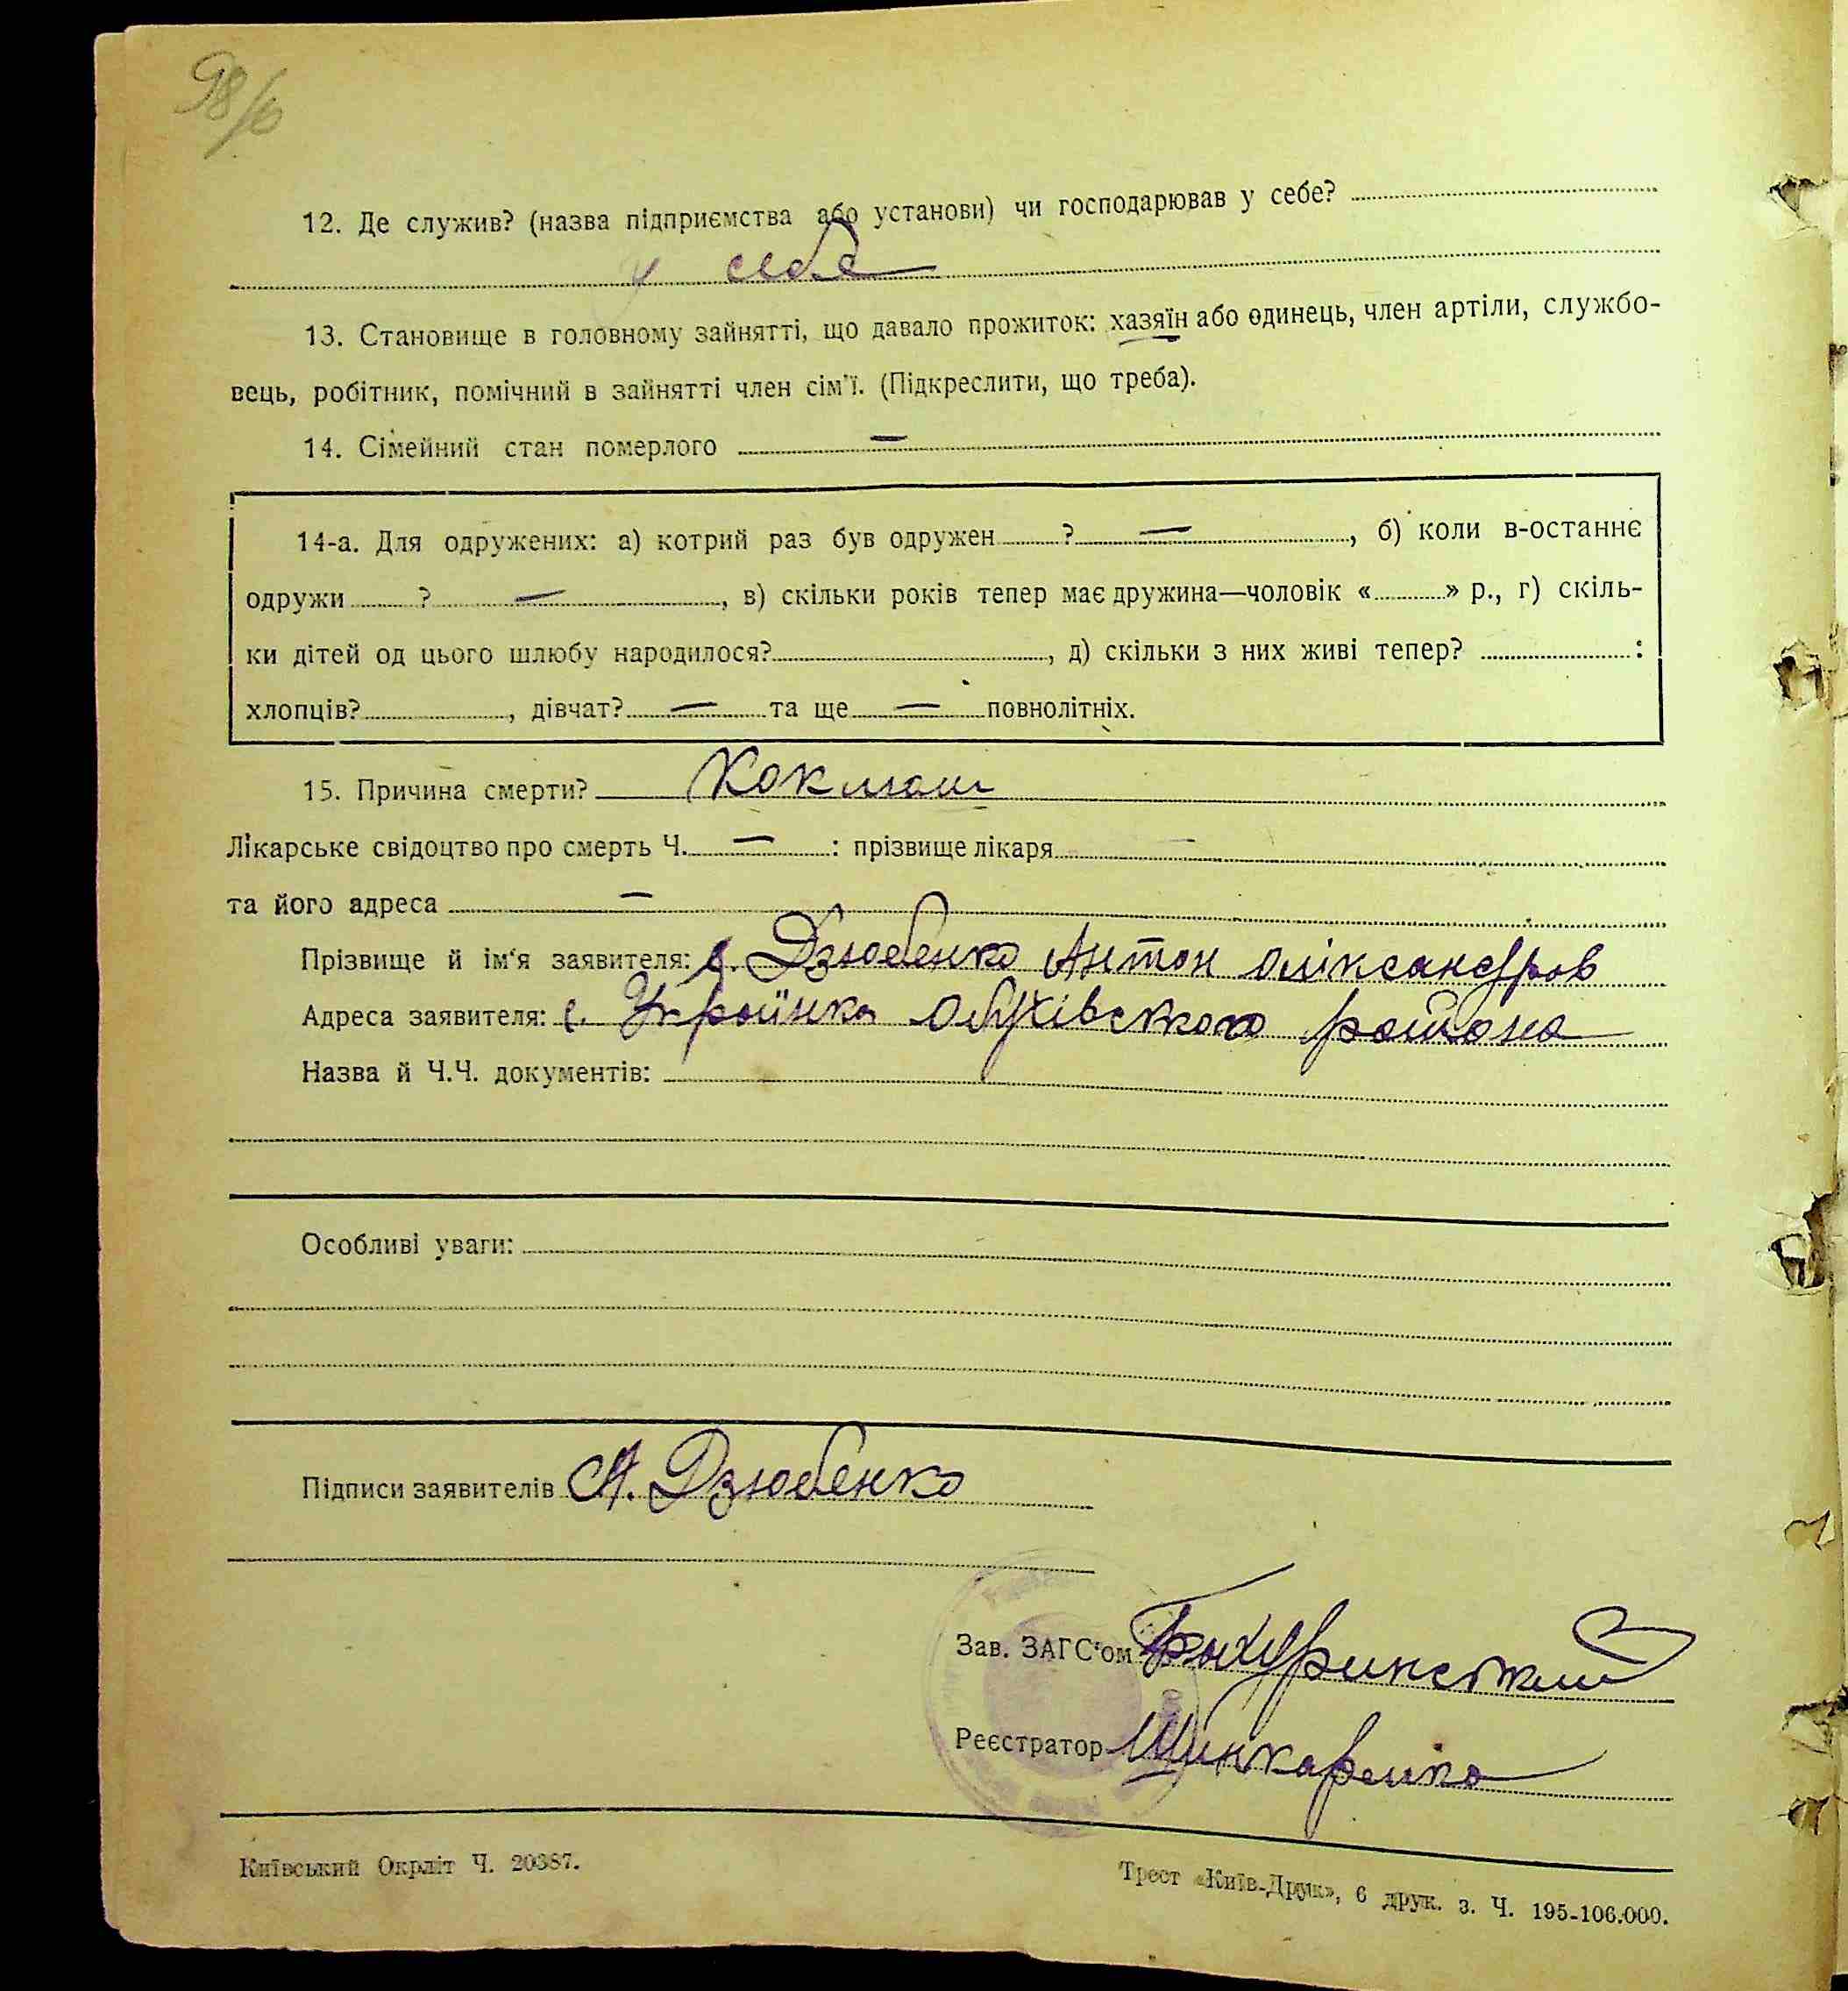 98/6
12. Де служив? (назва підприємства або установи) чи господарював у себе?
у себе
13. Становище в головному зайнятті, що давало прожиток: хазяїн або одинець, член артіли, службо-
вець, робітник, помічний в зайнятті член сім'ї. (Підкреслити, що треба).
14. Сімейний стан померлого —
14-а. Для одружених: а) котрий раз був одружен ? —, б) коли в-останнє
одружи ? —, в) скільки років тепер має дружина—чоловік « » р., г) скіль-
ки дітей од цього шлюбу народилося? , д) скільки з них живі тепер? :
хлопців? , дівчат? — та ще — повнолітніх.
15. Причина смерти? Коклюш
Лікарське свідоцтво про смерть Ч. — : прізвище лікаря
та його адреса —
Прізвище й ім'я заявителя: Дзюбенко Антон Оліксандров
Адреса заявителя: с. Україінка Обухівского района
Назва й Ч.Ч. документів:
Особливі уваги:
Підписи заявителів А. Дзюбенко
Зав. ЗАГС'ом
Реєстратор Шинкаренко
Київський Окрліт Ч. 20387.
Трест «Київ-Друк», 6 друк. з. Ч. 195-106.000.